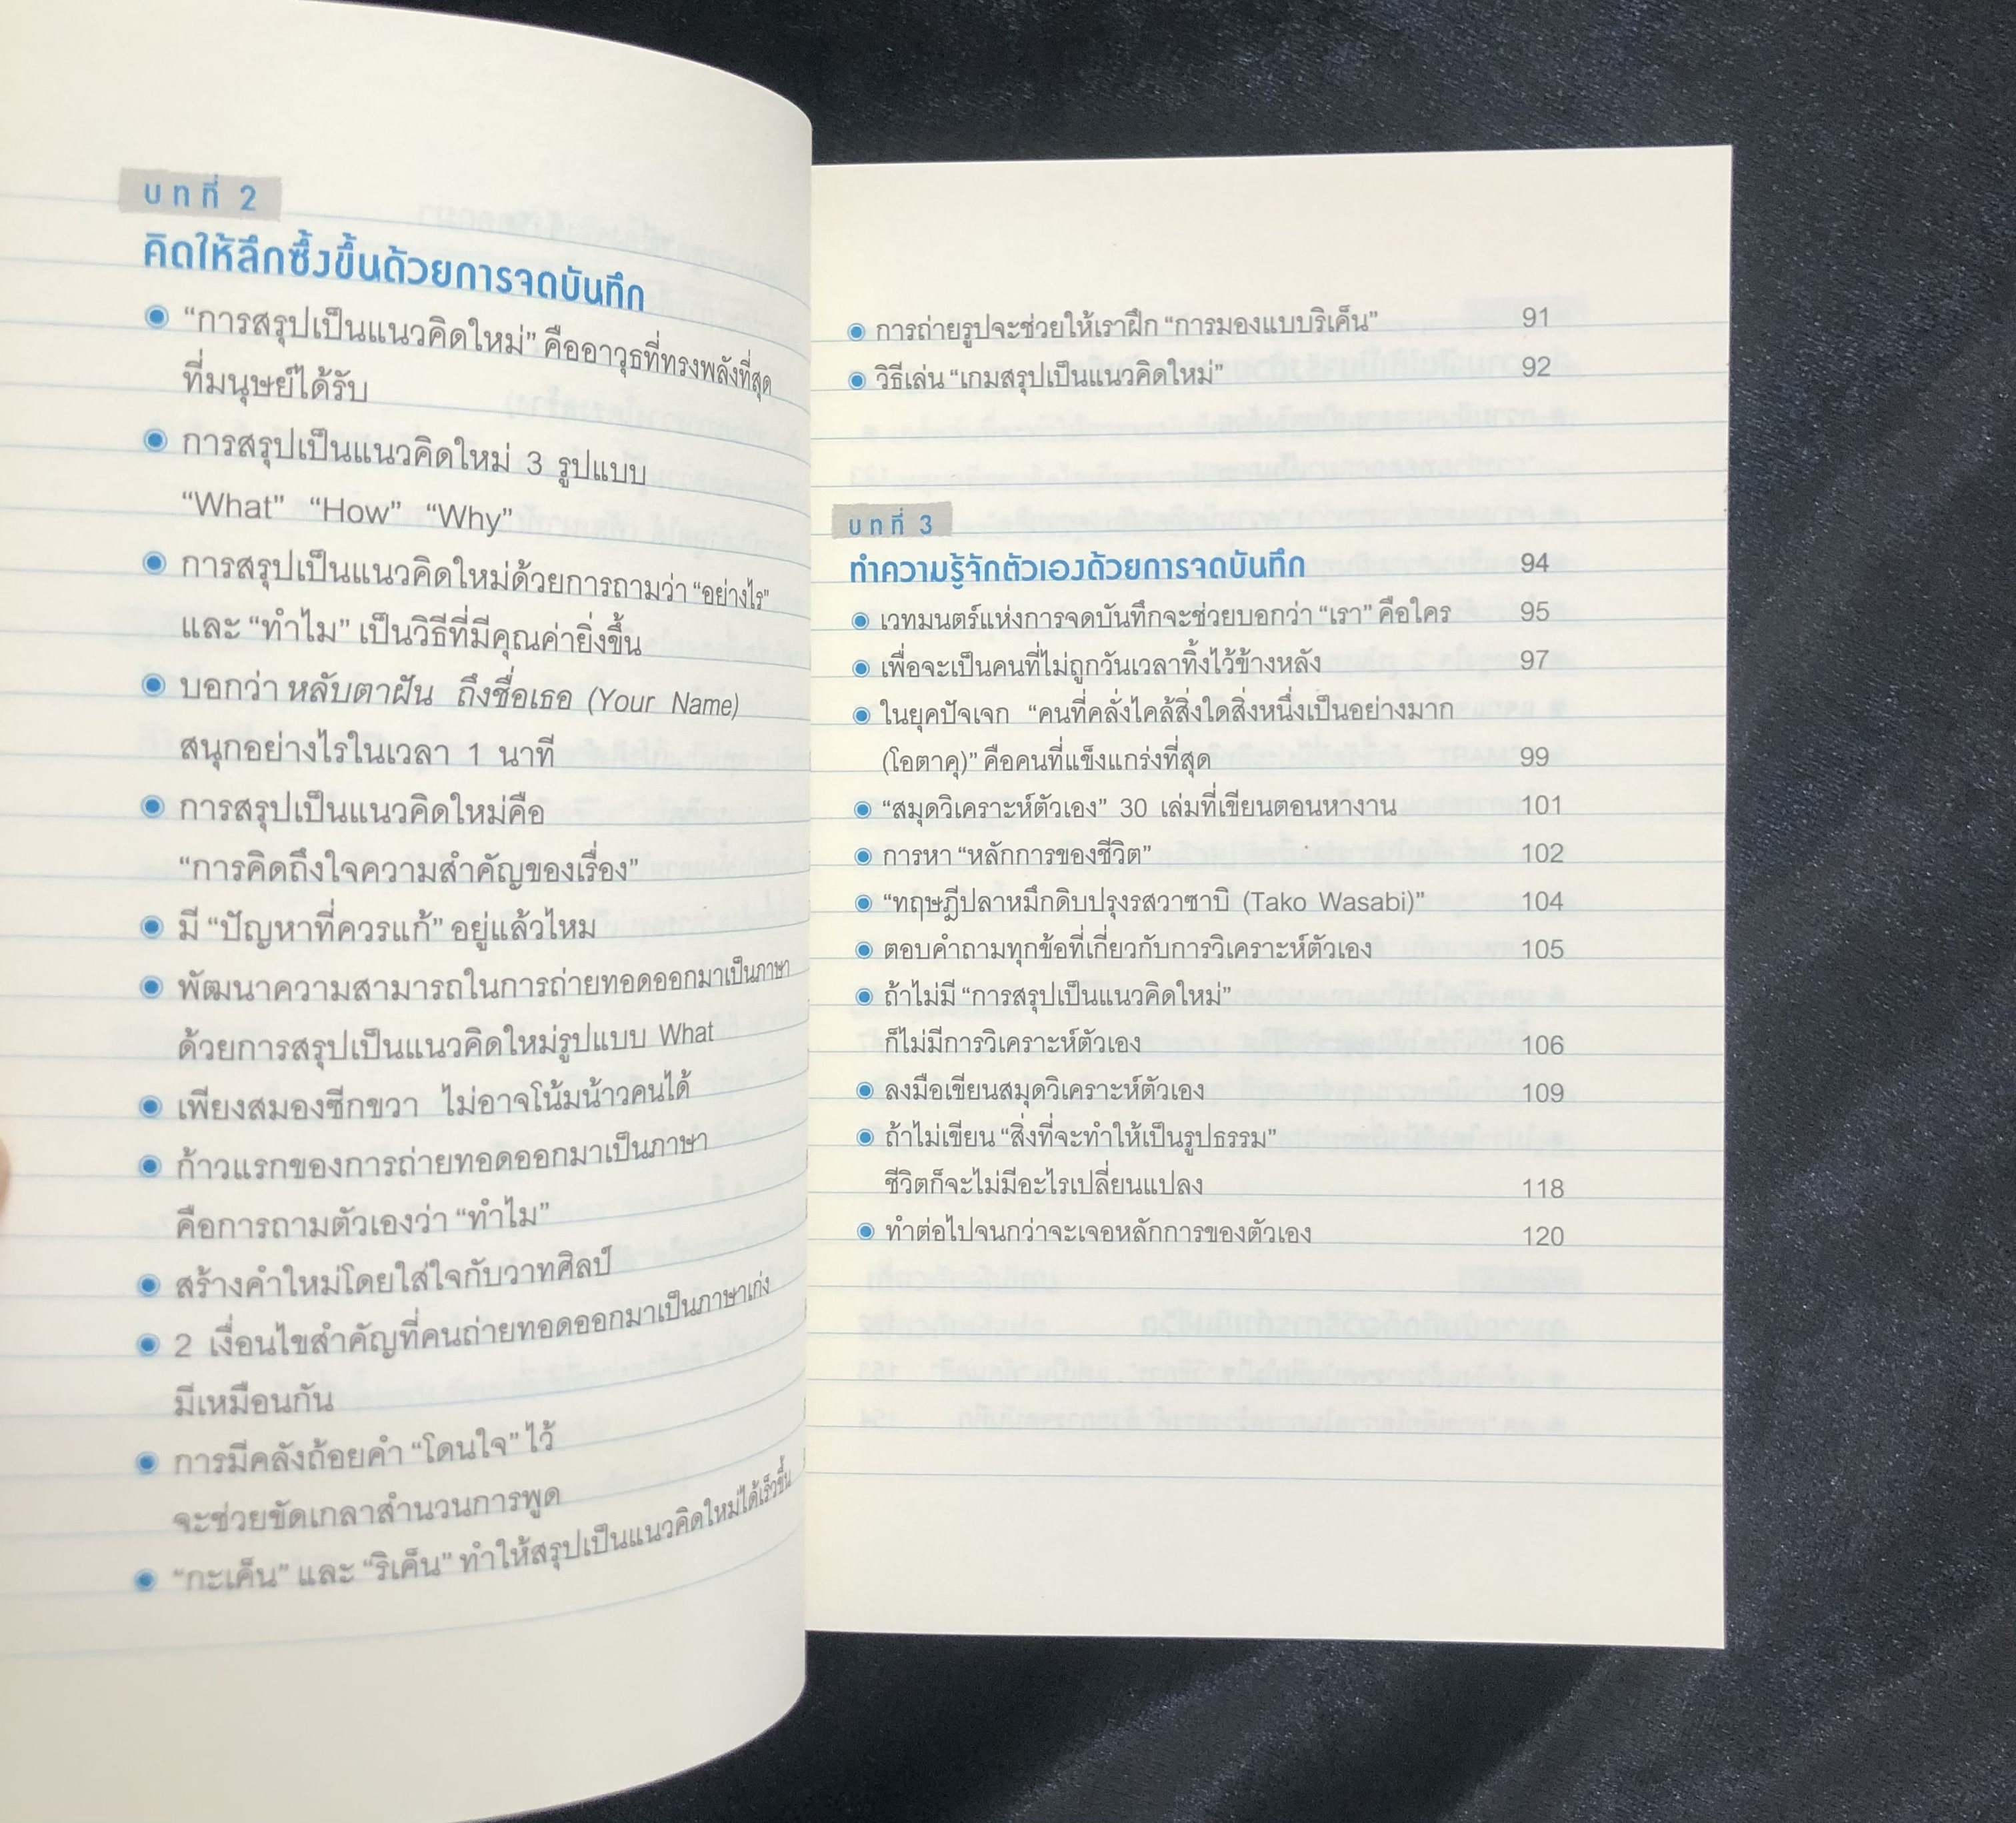 บทที่ 2
คิดให้ลึกซึ้งขึ้นด้วยการจดบันทึก
“การสรุปเป็นแนวคิดใหม่” คืออาวุธที่ทรงพลังที่สุด
ที่มนุษย์ได้รับ
การสรุปเป็นแนวคิดใหม่ 3 รูปแบบ
“What” “How” “Why”
การสรุปเป็นแนวคิดใหม่ด้วยการถามว่า “อย่างไร”
และ “ทำไม” เป็นวิธีที่มีคุณค่ายิ่งขึ้น
บอกว่า หลับตาฝัน ถึงชื่อเธอ (Your Name)
สนุกอย่างไรในเวลา 1 นาที
การสรุปเป็นแนวคิดใหม่คือ
“การคิดถึงใจความสำคัญของเรื่อง”
มี “ปัญหาที่ควรแก้” อยู่แล้วไหม
พัฒนาความสามารถในการถ่ายทอดออกมาเป็นภาษา
ด้วยการสรุปเป็นแนวคิดใหม่รูปแบบ What
เพียงสมองซีกขวา ไม่อาจโน้มน้าวคนได้
ก้าวแรกของการถ่ายทอดออกมาเป็นภาษา
คือการถามตัวเองว่า “ทำไม”
สร้างคำใหม่โดยใส่ใจกับวาทศิลป์
2 เงื่อนไขสำคัญที่คนถ่ายทอดออกมาเป็นภาษาเก่ง
มีเหมือนกัน
การมีคลังถ้อยคำ “โดนใจ” ไว้
จะช่วยขัดเกลาสำนวนการพูด
“กะเค็น” และ “ริเค็น” ทำให้สรุปเป็นแนวคิดใหม่ได้เร็วขึ้น
การถ่ายรูปจะช่วยให้เราฝึก “การมองแบบริเค็น” 91
วิธีเล่น “เกมสรุปเป็นแนวคิดใหม่” 92
บทที่ 3
ทำความรู้จักตัวเองด้วยการจดบันทึก 94
เวทมนตร์แห่งการจดบันทึกจะช่วยบอกว่า “เรา” คือใคร 95
เพื่อจะเป็นคนที่ไม่ถูกวันเวลาทิ้งไว้ข้างหลัง 97
ในยุคปัจเจก “คนที่คลั่งไคล้สิ่งใดสิ่งหนึ่งเป็นอย่างมาก
(โอตาคุ)” คือคนที่แข็งแกร่งที่สุด 99
“สมุดวิเคราะห์ตัวเอง” 30 เล่มที่เขียนตอนหางาน 101
การหา “หลักการของชีวิต” 102
“ทฤษฎีปลาหมึกดิบปรุงรสวาซาบิ (Tako Wasabi)” 104
ตอบคำถามทุกข้อที่เกี่ยวกับการวิเคราะห์ตัวเอง 105
ถ้าไม่มี “การสรุปเป็นแนวคิดใหม่”
ก็ไม่มีการวิเคราะห์ตัวเอง 106
ลงมือเขียนสมุดวิเคราะห์ตัวเอง 109
ถ้าไม่เขียน “สิ่งที่จะทำให้เป็นรูปธรรม”
ชีวิตก็จะไม่มีอะไรเปลี่ยนแปลง 118
ทำต่อไปจนกว่าจะเจอหลักการของตัวเอง 120